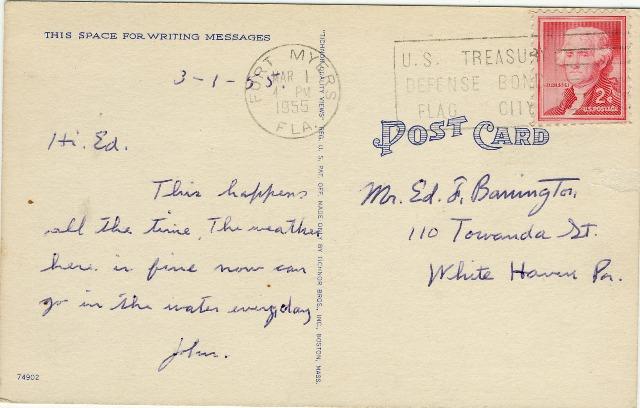 THIS SPACE FOR WRITING MESSAGES
3-1-55.
Hi. Ed.
This happens
all the time. The weather
here is fine now can
go in the water everyday
John.
74902
"TICHNOR QUALITY VIEWS" REG. U. S. PAT. OFF. MADE ONLY BY TICHNOR BROS., INC., BOSTON, MASS.
FORT MYERS
MAR 1
PM
1955
FLA.
U.S. TREASU
DEFENSE BON
FLAG CITY
2¢
U.S. POSTAGE
POST CARD
Mr. Ed. F. Barrington,
110 Towanda St.
White Haven Pa.